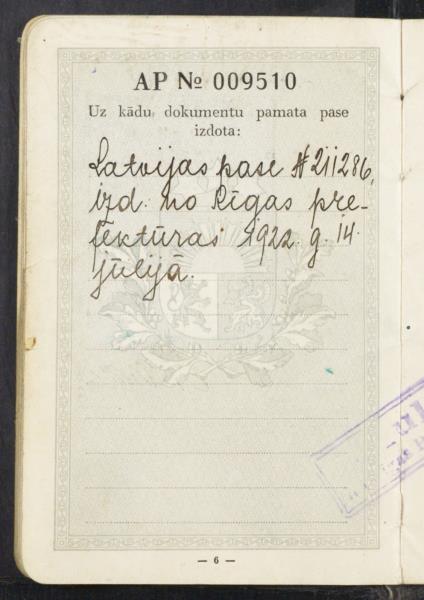 AP № 009510
Uz kādu dokumentu pamata pase
izdota:
Latvijas pase № 211286,
izd. no Rīgas pre-
fektūras 1922. g. 14.
jūlijā.
— 6 —